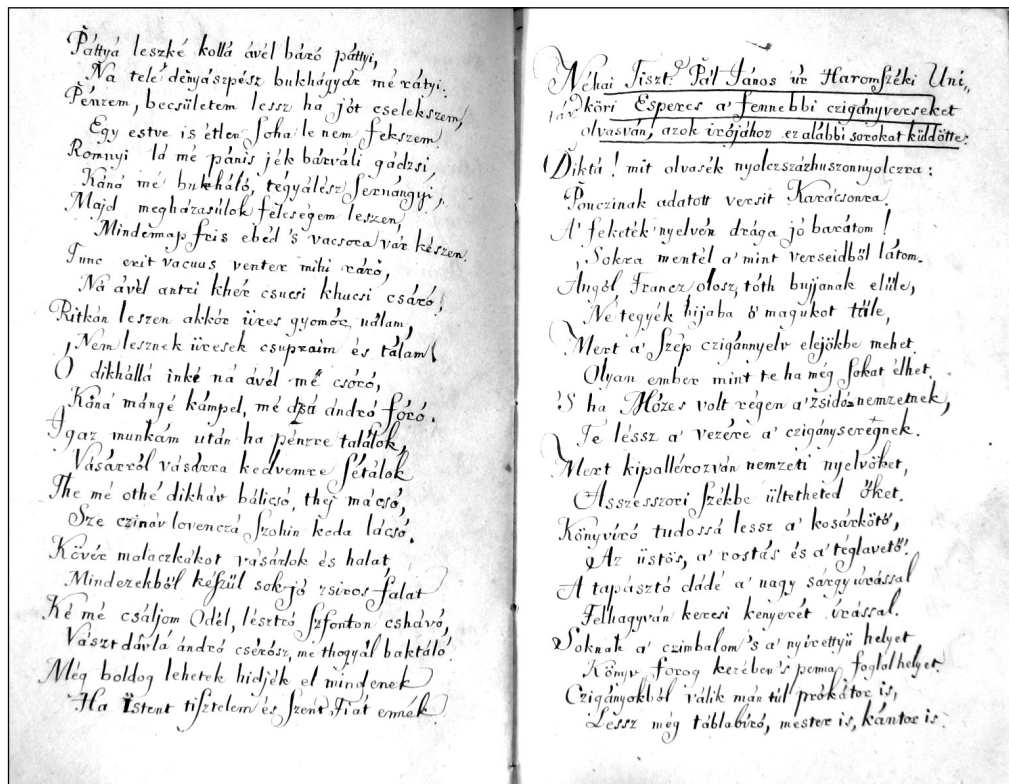 Páttyá leszké kollá ávél báró páttyi,
Ná telé denyászpész bukhágyár mé rátyi.
Pénzem, becsületem lessz ha jót cselekszem,
Egy estve is étlen soha le nem fekszem.
Romnyi lá mé pánis jék bárváli gádzsi,
Káná mé bukháló, tégyálész sernángyi,
Majd megházasúlok feleségem leszen,
Mindennap fris ebéd 's vacsora vár készen.
Tunc erit vacuus venter mihi ráró,
Ná ávél antri khér csucsi khucsi csáró!
Ritkán leszen akkór üres gyomór nálam,
Nem lesznek üresek csupraim és tálam!
O dikhállá inké ná ávél mé csóró,
Káná mángé kámpel, mé dzsá ándró fóró.
Igaz munkám után ha pénzre találok,
Vásárról vásárra kedvemre sétálok
The mé othé dikháv bálicsó, thej mácsó,
Sze czináv lovenczá szohin koda lácsó.
Kövér malaczkákot vásárlok és halat,
Mindezekből készül sok jó zsiros falat
Ké mé csáljom Odél, lésztró szfonton cshávó,
Vászt dávlá ándró cserósz, me thogyál baktáló.
Még boldog lehetek hidjék el mindenek
Ha Istent tisztelem és Szent Fiat ennek.
Néhai Tiszt. Pál János úr Haromszéki Uni,,
tár köri Esperes a' fennebbi czigányverseket
olvasván, azok irójához ez alábbi sorokat küldötte:
Dikta! mit olvasék nyolczszázhuszonnyolczra:
Ponczinak adatott versit Karácsonra.
A' feketék nyelvén drága jó barátom!
Sokra mentél a'mint verseidből látom.
Ángól Francz olosz, tóth bujjanak elüle,
Ne tegyék hijaba ő magukot tüle,
Mert a' szép czigánnyelv elejökbe mehet.
Olyan ember mint te ha még sokat élhet.
'S ha Mózes volt régen a'zsidó=nemzetnek,
Te léssz a' vezére a' czigányseregnek.
Mert kipallérozván nemzeti nyelvöket,
Asszesszori székbe ültetheted őket.
Könyviró tudossá lessz a' kosárkötő,
Az üstös, a' rostás és a' téglavető.
A tapasztó dádé a' nagy sárgyúrással
Felhagyván keresi kenyerét irással.
Soknak a' czimbalom 's a' nyirettyü helyet
Könyv forog kezében 's penna foglol helyet.
Czigányokból válik mán túl prókátor is,
Lessz még táblabiró, mester is, kántor is.